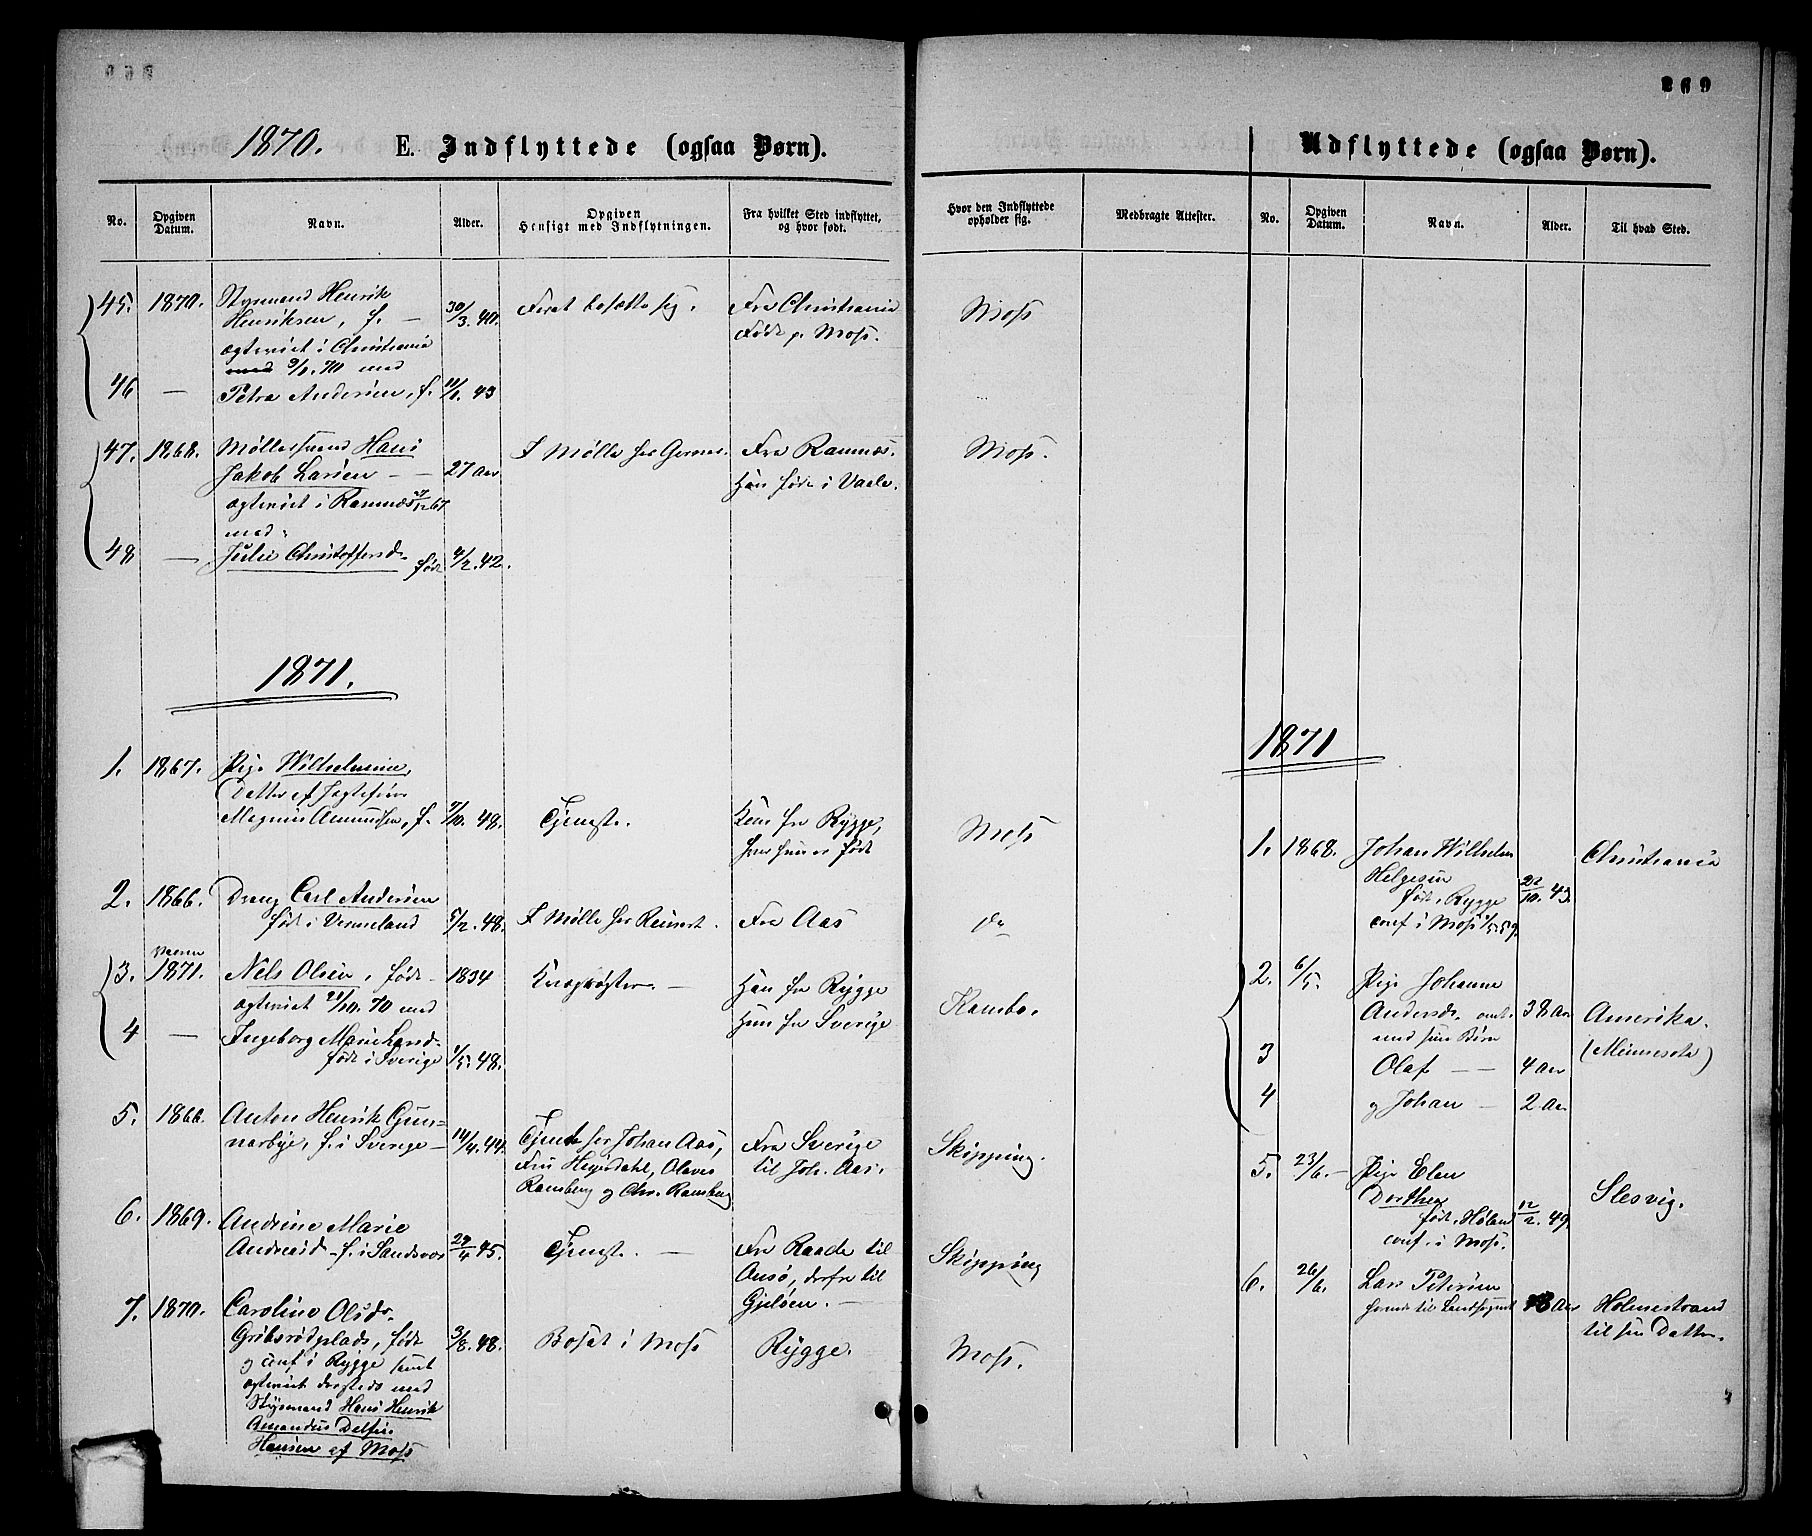 269
1870. E. Indflyttede (ogsaa Børn).
No. Opgiven Datum. Navn. Alder. Opgiven Hensigt med Indflytningen. Fra hvilket Sted indflyttet, og hvor født. Hvor den Indflyttede opholder sig. Medbragte Attester.
45. 1870. Styrmand Henrik
Henriksen, f. — 30/3. 40. Foret bosætte sig. Fra Christiania Moss
ægteviet i Christiania Født p. Moss.
med 9/1. 70 med
46 — Petra Andersen, f. 11/1. 43
47. 1868. Møllersvend Hans I Mølle hos Fra Ramnæs. Moss.
Jakob Larsen — 27 Aar Han født i Vaale.
ægteviet i Ramnæs 67
med
48 — Julie Christoffersd. født 4/2. 42.
1871.
1. 1867. Pige Wilhelmine,
Datter af
Magnus Amundsen, f. 7/10. 48. Tjeneste. Kom fra Rygge, Moss
hvor hun er født
2. 1866. Dreng Carl Andersen
født i Vermeland 5/2. 48. I Mølle hos Reinert. Fra Aas do
3. 1871. Nels Olsen, født 1834 Kreaturrøgter. — Han fra Rygge Kambo.
ægteviet 21/10. 70 med Hun fra Sverige
4 — Ingeborg Marie Larsd.
født i Sverige 1/5. 48.
5. 1866. Anton Henrik Gunnarbye, f. i Sverige — 14/4. 44. Tjent hos Johan Aas, Fra Sverige Skipping.
Fru Heyerdahl, Olaves til Joh. Aas.
Ramberg og Chr. Ramberg
6. 1869. Andrine Marie
Andreasd. f. i Sandsvær 29/4 45. Tjenest. — Fra Raade til Skipping
Ansø, derfra til
Gjeløen. —
7. 1870. Caroline Olsd.
Grøbsrødplads, født 3/8. 48. Bosat i Moss Rygge. Moss.
og conf i Rygge samt
ægteviet dersteds med
Styrmand Hans Henrik
Amandus
Hansen af Moss
Udflyttede (ogsaa Børn).
No. Opgiven Datum. Navn. Alder. Til hvad Sted.
1871
1. 1868. Johan Wilhelm Christiania
Helgesen
født i Rygge 22/10. 43.
conf i Moss 59.
2. 6/5. Pige Johanne
Andersd. 38 Aar Amerika.
med sine Børn (Minnesota)
3 Olaf — — 4 Aar
4 og Johan — 2 Aar
5. 23/6. — Pige Elen
Dorthea Slesvig.
født i Høland 12/2. 49.
conf. i Moss.
6. 26/6. Lars Petersen
til Landsognet Aar Holmestrand
til sin Datter.